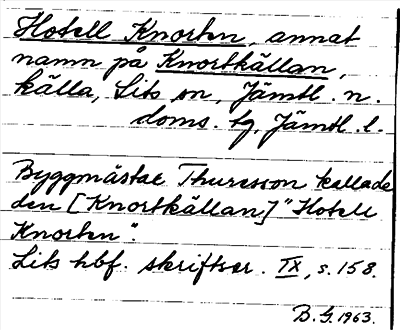 Hotell Knorten, annat
namn på Knortkällan,
källa, Lits sn, Jämtl. n.
doms. tg, Jämtl. l.
Byggmästar Thuresson kallade
den [Knortkällan] "Hotell
Knorten".
Lits hbf. skriftser. IX, s. 158.
D. G. 1963.